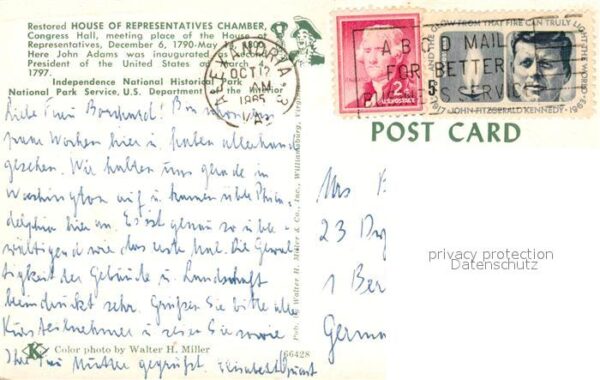 Restored HOUSE OF REPRESENTATIVES CHAMBER,
Congress Hall, meeting place of the House of
Representatives, December 6, 1790-May 14, 1800.
Here John Adams was inaugurated as second
President of the United States on March 4,
1797.
Independence National Historical Park
National Park Service, U.S. Department of the Interior
ALEXANDRIA
OCT 17
1965
VA
2¢
U.S. POSTAGE
AND THE GLOW FROM THAT FIRE CAN TRULY LIGHT THE WORLD
5¢
1917 JOHN FITZGERALD KENNEDY 1963
A B C D MAIL
FOR BETTER
BUSINESS SERVICE
POST CARD
Liebe Frau
Wochen hier u. haben allerhand
gesehen. Wir halten uns gerade in
Washington auf u. kamen über Phila-
delphia hier an. Es ist genau so über-
wältigend wie das erste Mal. Die Gewal-
tigkeit der Gebäude u. Landschaft
beeindruckt sehr. Grüßen Sie bitte alle
Kursteilnehmer u. seien Sie sowie
Ihre Frau Mutter gegrüßt. Elisabeth
Mrs
23
1 Ber
Germa
privacy protection
Datenschutz
Pub. by Walter H. Miller & Co., Inc., Williamsburg, Virginia
K Color photo by Walter H. Miller
66428